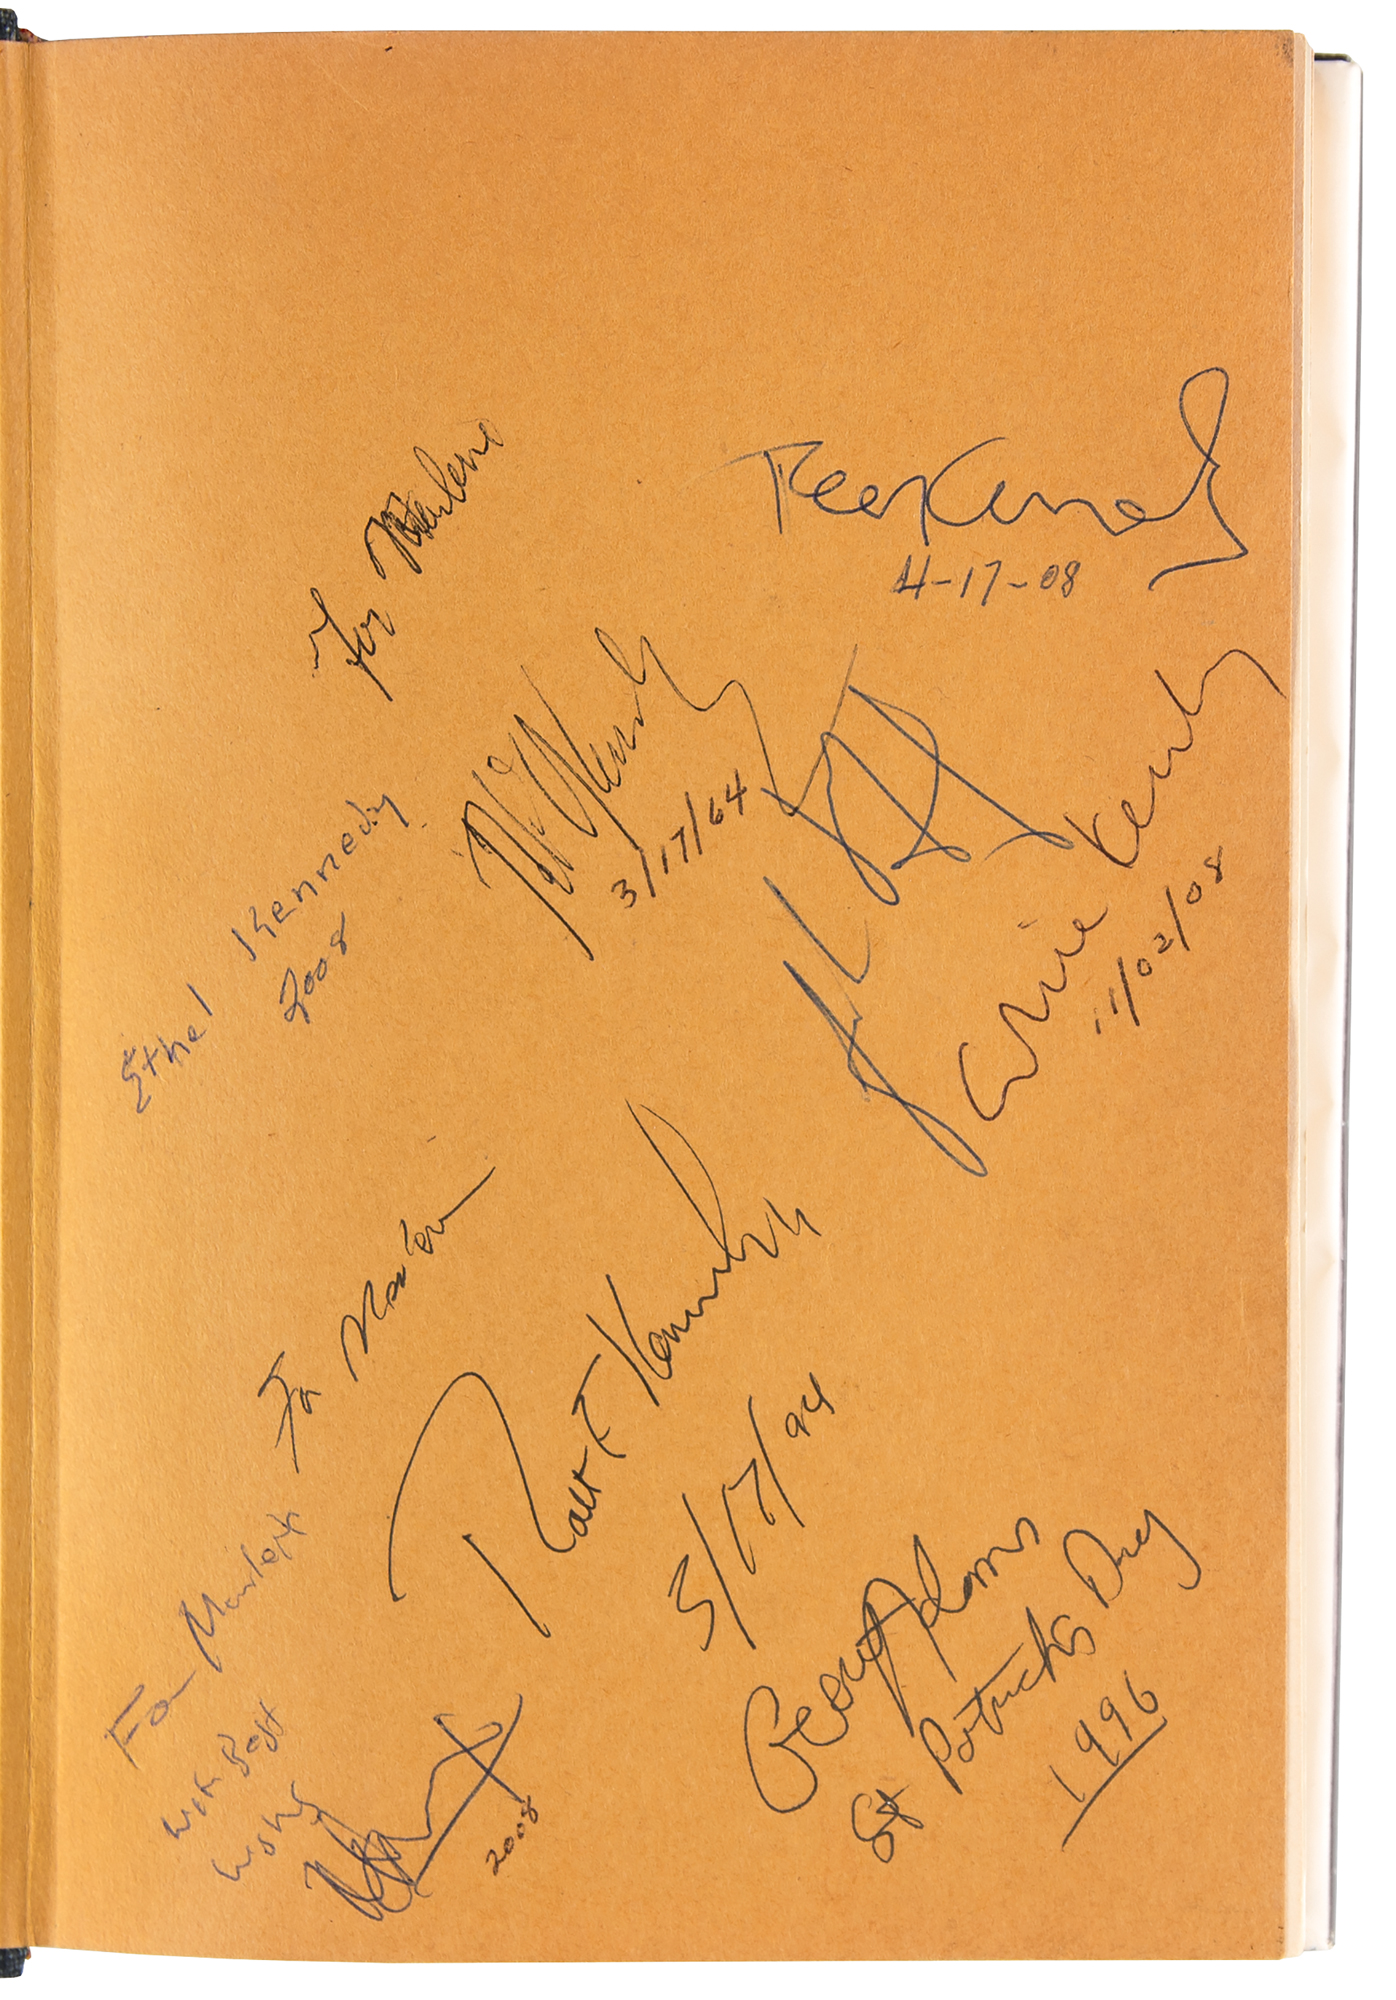 Ted Kennedy
4-17-08
For Marlene
3/17/64
Ethel Kennedy
2008
Kennedy
11/02/08
For
Robert F Kennedy Jr
3/17/94
Gerry Adams
St Patricks Day
1996
For Marlene
With Best
Wishes
2008